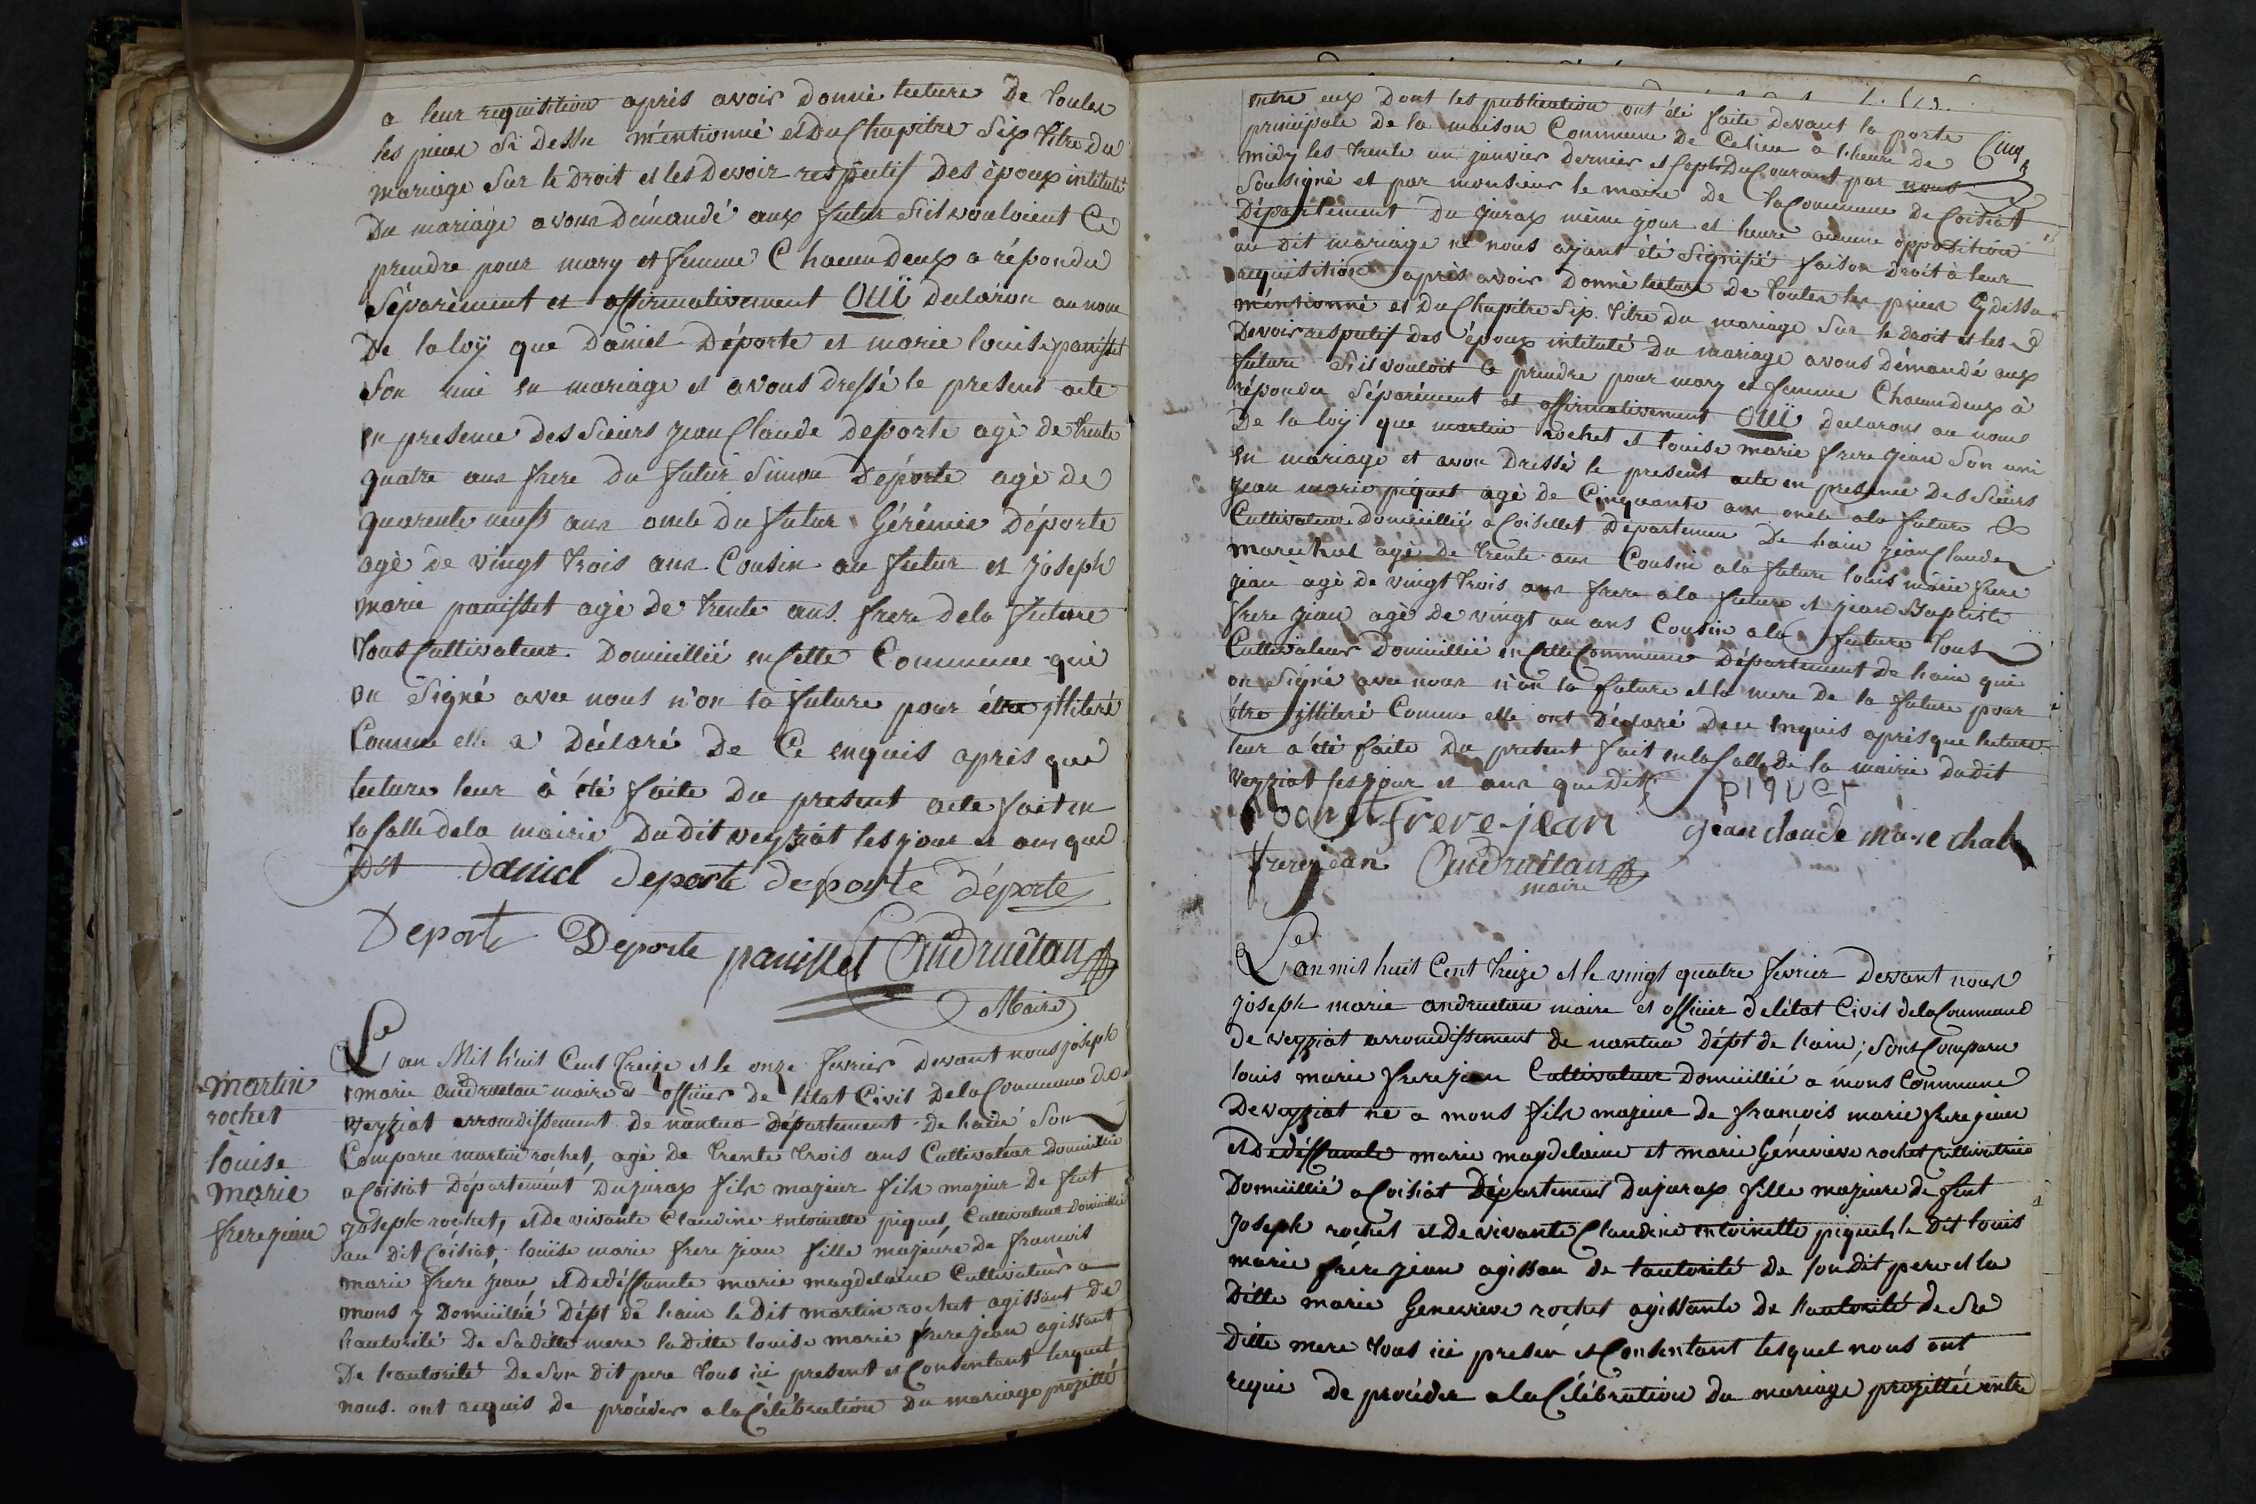 a leur requisition après avoir donné lecture de toutes
les pieces si dessu mentionné et du Chapitre six titre du
mariage sur le droit et les devoir respectif des époux intitulé
du mariage avons démandé aux futur s'il vouloient ce
prendre pour mary et femme Chacun deux a répondu
séparèment et affirmativement OUI declaron au nom
de la loÿ que daniel déporte et marie louise panisset
son uni en mariage et avons dressé le present acte
en presence des sieurs jean Claude deporte agè de trente
quatre ans frere du futur simon déporte agè de
quarente neuf ans oncle du futur Gérémie déporte
agè de vingt trois ans Cousin au futur et joseph
marie panisset agè de trente ans frere de la future
tous Cultivateur domicillié en cette Commune qui
on signé avec nous n'on la future pour être jlliteré
Comme elle a déclaré de Ce enquis après que
lecture leur à été faite du present acte fait en
la salle de la mairie du dit veyziat les jour et ans que
dit daniel deporté deporte déporte
Deporte Deporte panisset Andruétan
Maire
martin
rochet
louise
marie
frerejean
L'an Mil huit Cent treize et le onze fevrier devant nous joseph
marie andruetan maire et officier de l'état Civil de la Commune de
veyziat arrondissement de nantua département de l'ain son
Comparu martin rochet, agè de trente trois ans Cultivateur domicillié
a Coisiat département du jurax fils majeur fils majeur de feut
joseph rochet, et de vivante Claudine entoinette piquet, Cultivateur domicillié
au dit Coisiat; louise marie frere jean fille majeure de francois
marie frere jean et de déffuncte marie magdelaine Cultivateur a
mons y domicillié dépt de l'ain le dit martin rochet agissant de
l'autorité de sa ditte mere la ditte louise marie frere jean agissant
de l'autorité de son dit pere tous ici present et Consentant lesquel
nous ont requis de procéder a la Célébration du mariage projetté
entre eux dont les publication ont été faite devant la porte
principale de la maison Commune de Ce lieu a l'heure de Cinq
midy les trente un janvier dernier et sept du Courant par nous
Sousigné et par monsieur le maire de la Commune de Coisiat
Département du jurax même jour et heure aucune oppotition
au dit mariage ne nous ayant été signifié faison droit a leur
requisition après avoir donné lecture de toutes les pieces Cy dessu
mentionné et du Chapitre six titre du mariage sur le droit et les
devoir respectif des époux intitulé du mariage avons démandé aux
future s'il vouloit ce prendre pour mary et femme Chacun deux à
répondu séparément et affirmativement OUI declarons au nom
de la loÿ que martin rochet et louise marie frere jean son uni
en mariage et avon dressé le present acte en presence des sieurs
jean marie piquet agè de Cinquante ans oncle a la future
Cultivateur domicillié a Coisellet département de l'ain jean Claude
marechal agè de trente ans Cousin a la future louis marie frere
jean agè de vingt trois ans frere a la future et jean Baptiste
frere jean agè de vingt un ans Cousin a la future tous
Cultivateur domicillié en cette Commune département de l'ain qui
on signé avec nous n'on la future et la mere de la future pour
être jlliteré Comme elle ont déclaré de ce enquis après que lecture
leur a été faite du present fait en la salle de la mairie du dit
veyziat les jour et ans que dit piquet
rochet frere-jean jean claude marechal
frerejean Andruétan
maire
L'an mil huit Cent treize et le vingt quatre fevrier devant nous
joseph marie andruetan maire et officier de l'état Civil de la Commune
de veyziat arrondissement de nantua dépt de l'ain; sont Comparu
louis marie frere jean Cultivateur domicillié a mons Commune
de veyziat ne a mons fils majeur de francois marie frere jean
et de déffuncte marie magdelaine et marie Génevieve rochet Cultivatrice
domicillié a Coisiat Département du jurax fille majeure de feut
joseph rochet et de vivante Claudine entoinette piquet, le dit louis
marie frére jean agissan de l'autorité de son dit pere et la
ditte marie Genevieve rochet agissante de l'autorité de sa
ditte mere tous ici presen et Consentant lesquel nous ont
requi de procéder a la Célébration du mariage projetté entre